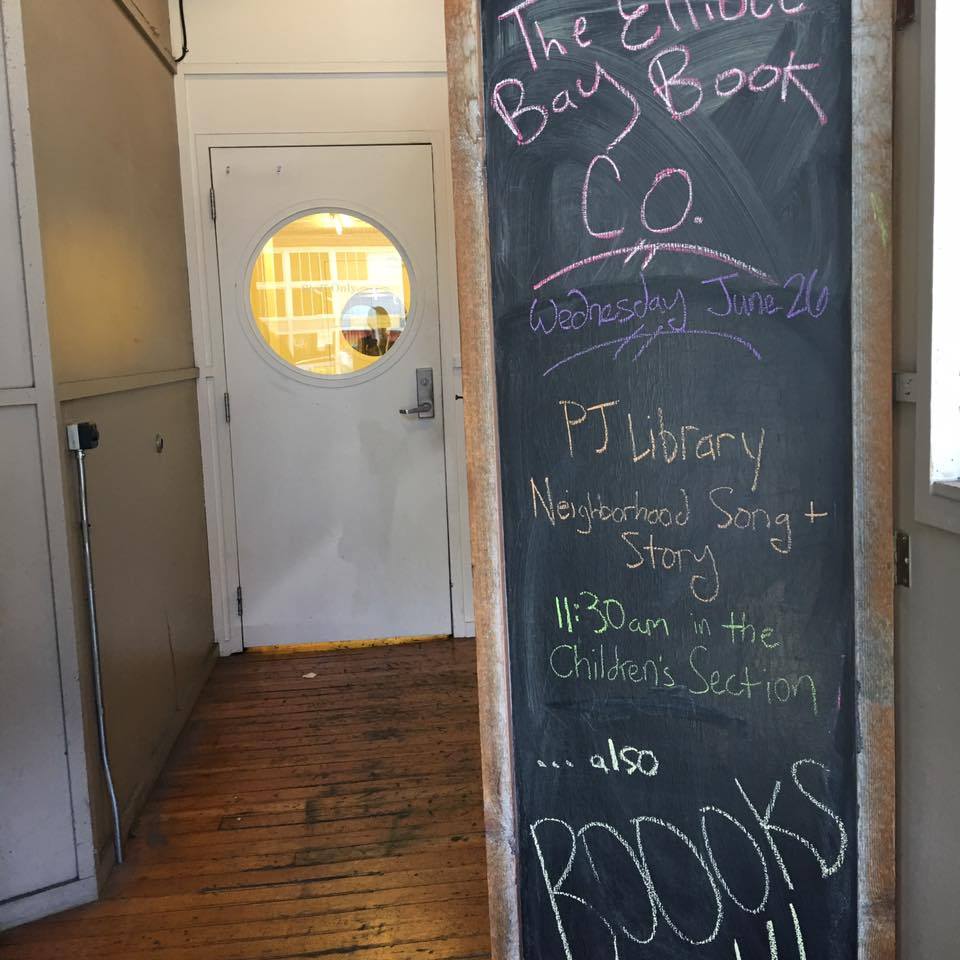 The Elliott
Bay Book
Co.
Wednesday June 26
PJ Library
Neighborhood Song +
Story
11:30am in the
Children's Section
... also
BOOOKS
!!